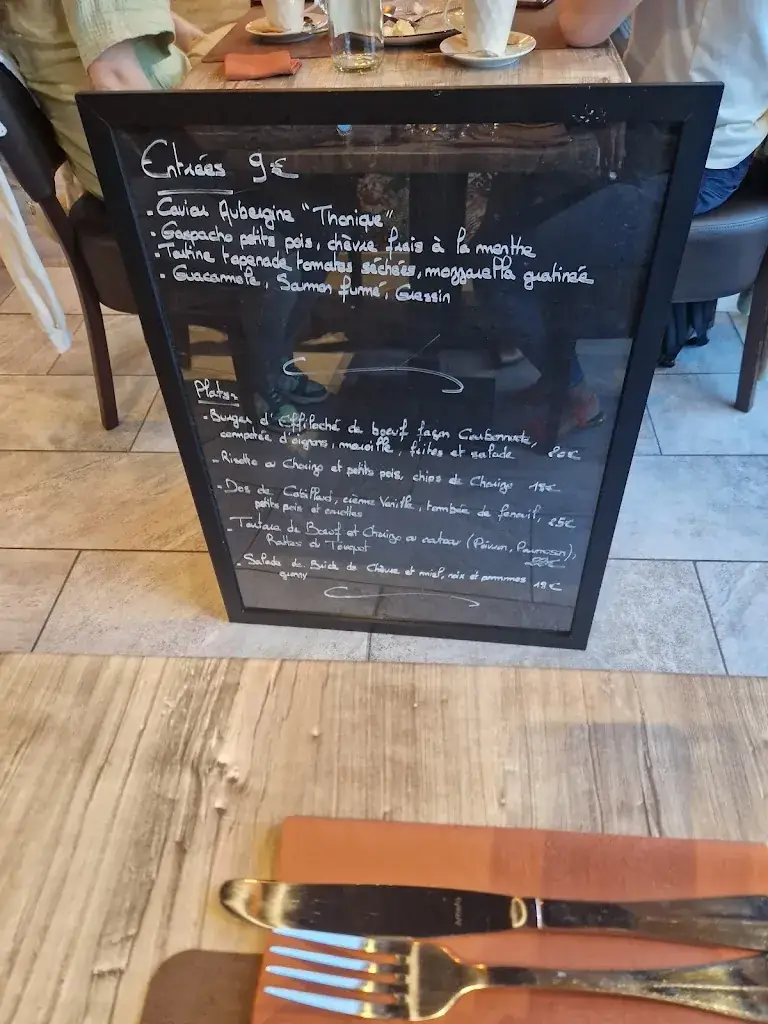 Entrées 9€
- Caviar Aubergine "Thonique"
- Gaspacho petits pois, chèvre frais à la menthe
- Tartine tapenade tomates séchées, mozzarella gratinée
- Guacamole, Saumon fumé, Gressin
Plats
- Burger d'Effiloché de bœuf façon Carbonnade,
compotée d'oignons, maroille, frites et salade 20€
- Risotto au Chorizo et petits pois, chips de Chorizo 18€
- Dos de Cabillaud, crème Vanille, tombée de fenouil,
petits pois et carottes 25€
- Tartare de Bœuf et Chorizo au couteau (Poivron, Parmesan),
Rattes du Touquet 22€
- Salade de Brick de Chèvre et miel, noix et pommes
granny 19€